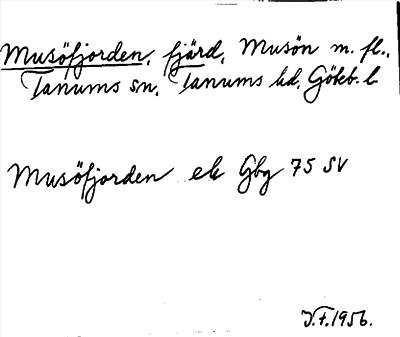 Musöfjorden, fjärd, Musön m. fl.,
Tanums sn, Tanums hd, Göteb. l.
Musöfjorden ek Gbg 75 SV
J.F. 1956.